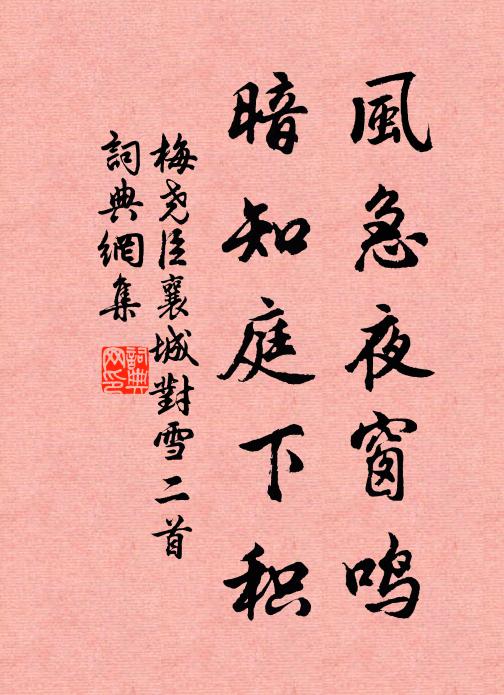 風急夜窗鸣
暗知庭下积
梅尧臣襄城對雪二首
詞典網集
詞典網印